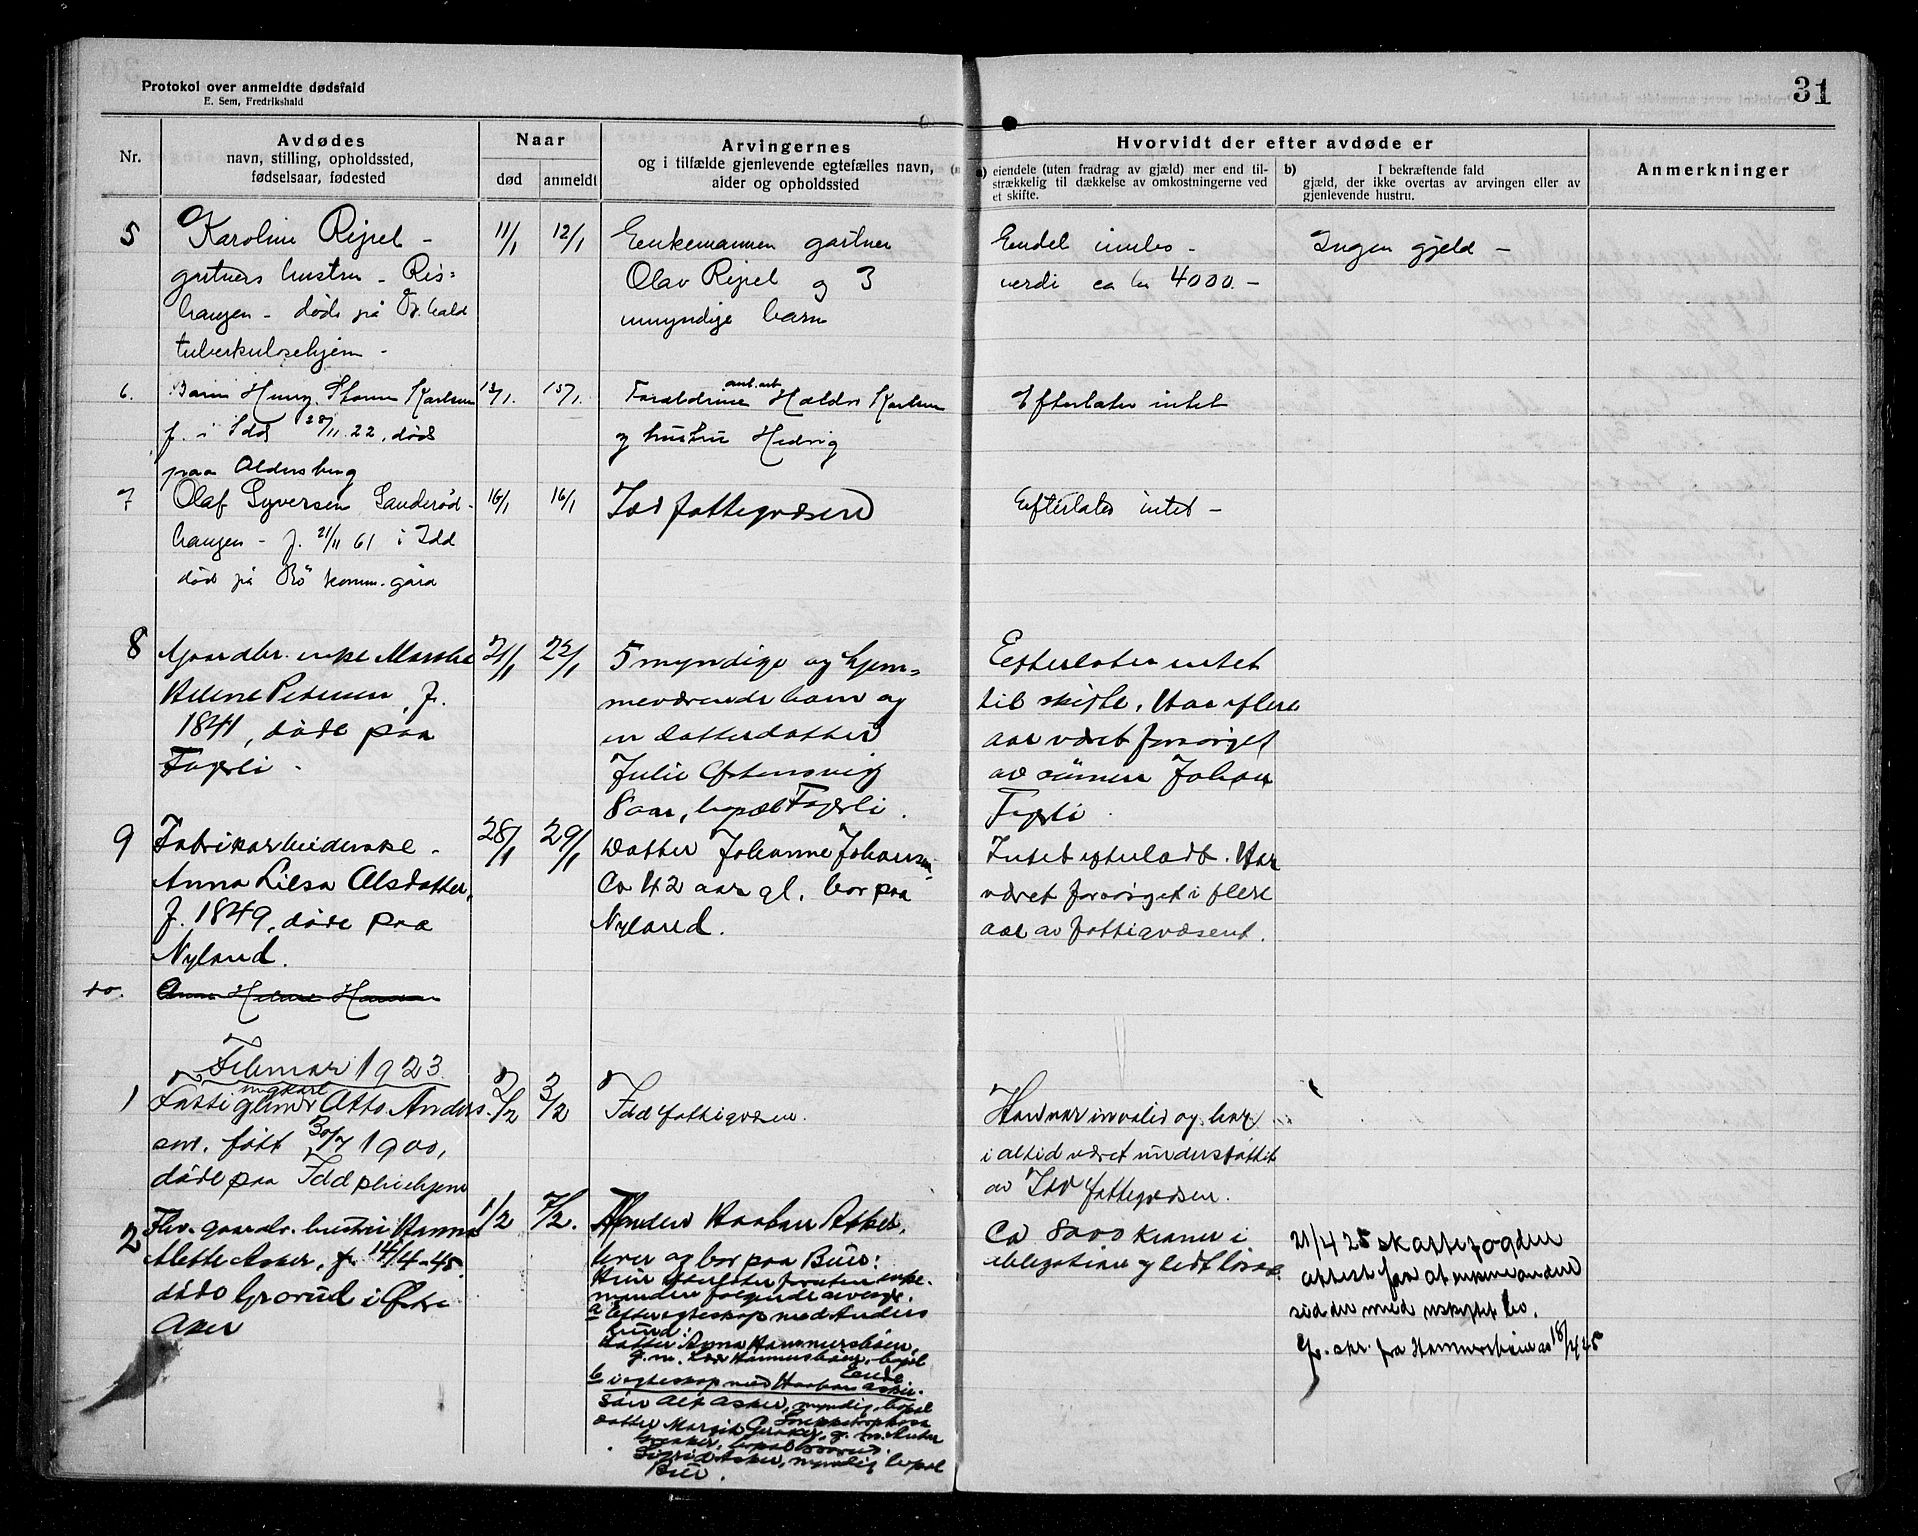 Protokol over anmeldte dødsfald
E. Sem, Fredrikshald
31
Nr.
Avdødes
navn, stilling, opholdssted,
fødselsaar, fødested
Naar
død
anmeldt
Arvingernes
og i tilfælde gjenlevende egtefælles navn,
alder og opholdssted
Hvorvidt der efter avdøde er
a) eiendele (uten fradrag av gjæld) mer end til-
strækkelig til dækkelse av omkostningerne ved
et skifte.
b) I bekræftende fald
gjæld, der ikke overtas av arvingen eller av
gjenlevende hustru.
Anmerkninger
5
Karoline Rijsel -
gartners hustru - Ris=
haugen - døde på Fr.hald
tuberkulosehjem -
11/1
12/1
Enkemannen gartner
Olav Rijsel og 3
umyndige barn
Endel innbo -
verdi ca kr 4000. -
Ingen gjeld -
6.
Barn Henry Karlsen
f. i Idd 28/11.22, død
paa Aldersberg
13/1.
15/1.
Forældrene arb. Karlsen
og hustru Hedvig
Efterlater intet
7
Olaf Syversen Sanderød-
haugen - f. 21/11 61 i Idd
død på Bø komm. gård
16/1
16/1
Idd fattigvæsen
Efterlater intet -
8
Gaardbr. enke Marthe
Helene Petersen, f.
1841, døde paa
Fagerli -
21/1
22/1
5 myndige og hjem-
meværende barn og
en datterdatter
Julie
8 aar, bopæl Fagerli.
Efterlater intet
til skifte. Har i flere
aar været forsørget
av sønnen Johan
Fagerli.
9
Fabrikarbeiderske -
Anna Lilsa Olsdatter,
f. 1849, døde paa
Nyland.
28/1
29/1
Datter Johanne Johansen
Ca 42 aar gl. bor paa
Nyland.
Intet efterladt. Har
været forsørget i flere
aar av fattigvæsenet.
10.
Anna Helene Hansen
Februar 1923
1
Fattiglem ungkarl Otto Anders
sen. født 30/7 1900,
døde paa Idd pleiehjem
2/2
3/2
Idd fattigvæsen.
Han var invalid og har
altid været understøttet
av Idd fattigvæsen.
2
Fhv. gaardbr. hustru Hanna
Mette Asker, f. 14/4-45.
døde Grorud i Østre
Aker
1/2
7/2.
Manden Haaben Asker,
lever og bor paa Buer:
Hun efterlater foruten enke-
manden følgende arvinger.
a Efter egteskap med Anders
Lund:
Datter Anna Hammersbøen,
g. m. Hammersbøen, bopæl
b i egteskap med Haaben Asker.
Søn Alf Asker, myndig, bopæl
datter Margit
bopæl Grorud.
Sigrid Asker, myndig bopæl
Buer.
Ca 8000 kroner i
obligationer og litt løsøre.
21/4 25 skattefogden
attest for at enkemanden
sidder med uskiftet bo.
jfr. skr. fra Hammersbøen av 18/4 25